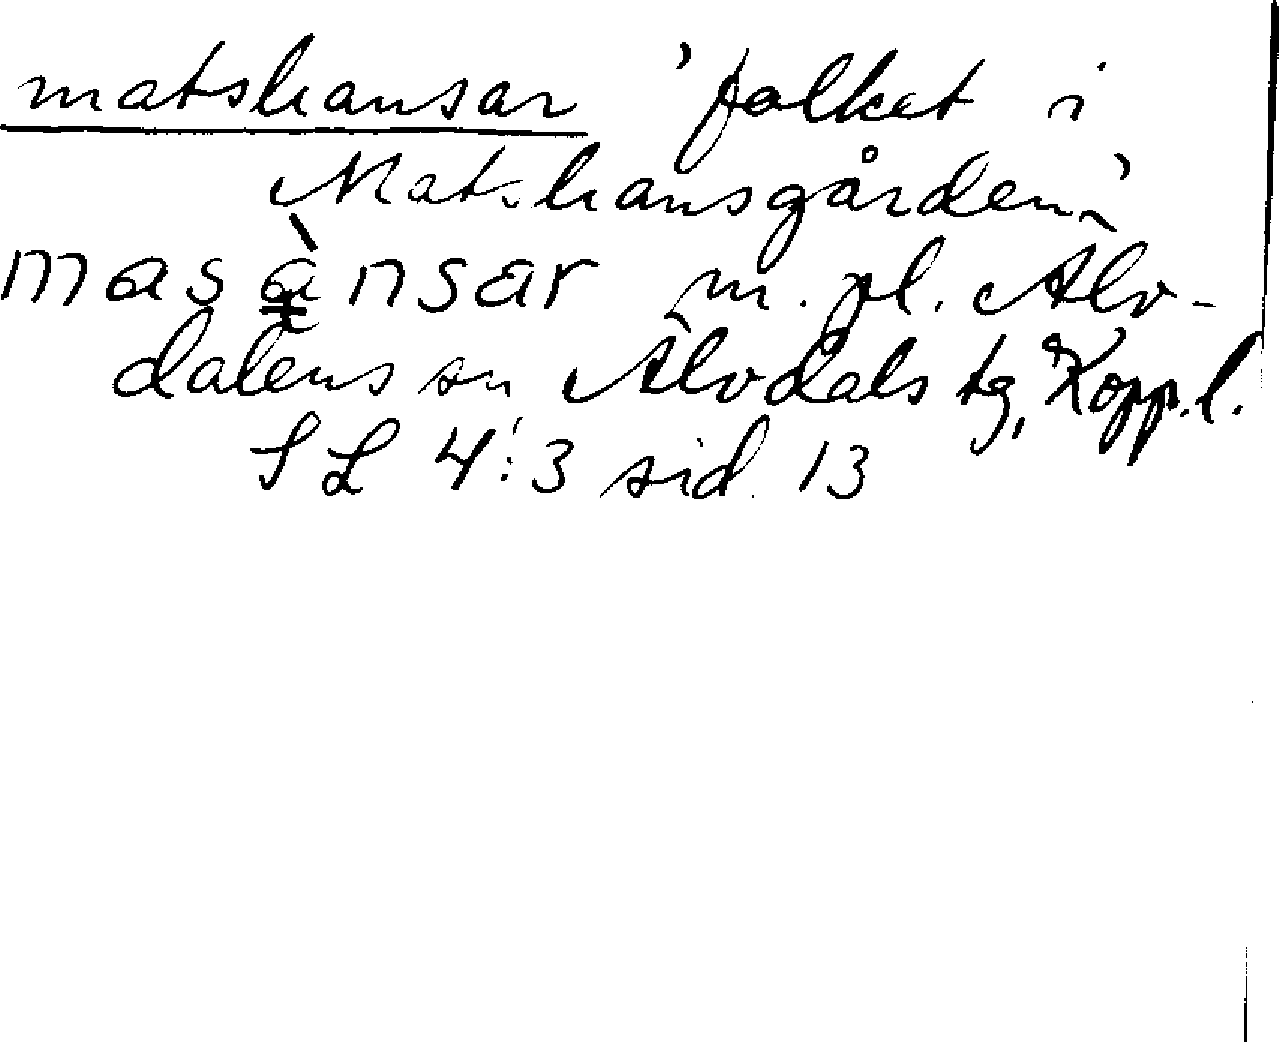 matshansar 'folket i
Matshansgården'
masànsar m. pl. Älv-
dalens sn Älvdals tg, Kopp.l.
SL 4:3 sid. 13